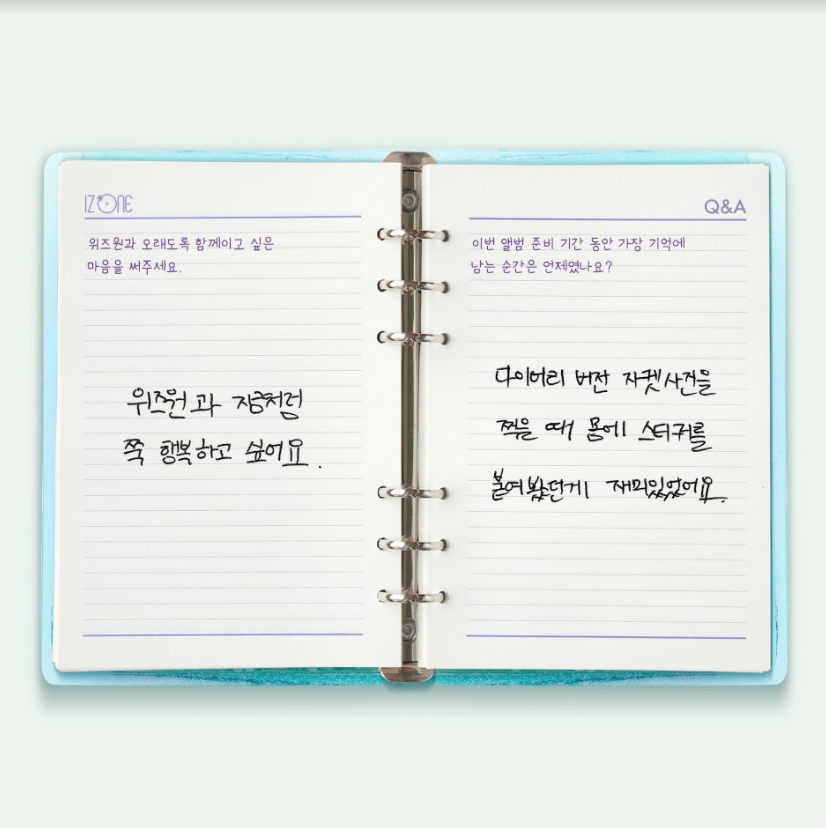 IZ*ONE
위즈원과 오래도록 함께이고 싶은
마음을 써주세요.
위즈원과 지금처럼
쭉 행복하고 싶어요.
Q&A
이번 앨범 준비 기간 동안 가장 기억에
남는 순간은 언제였나요?
다이어리 버전 자켓사진을
찍을 때 몸에 스티커를
붙여봤던게 재미있었어요.